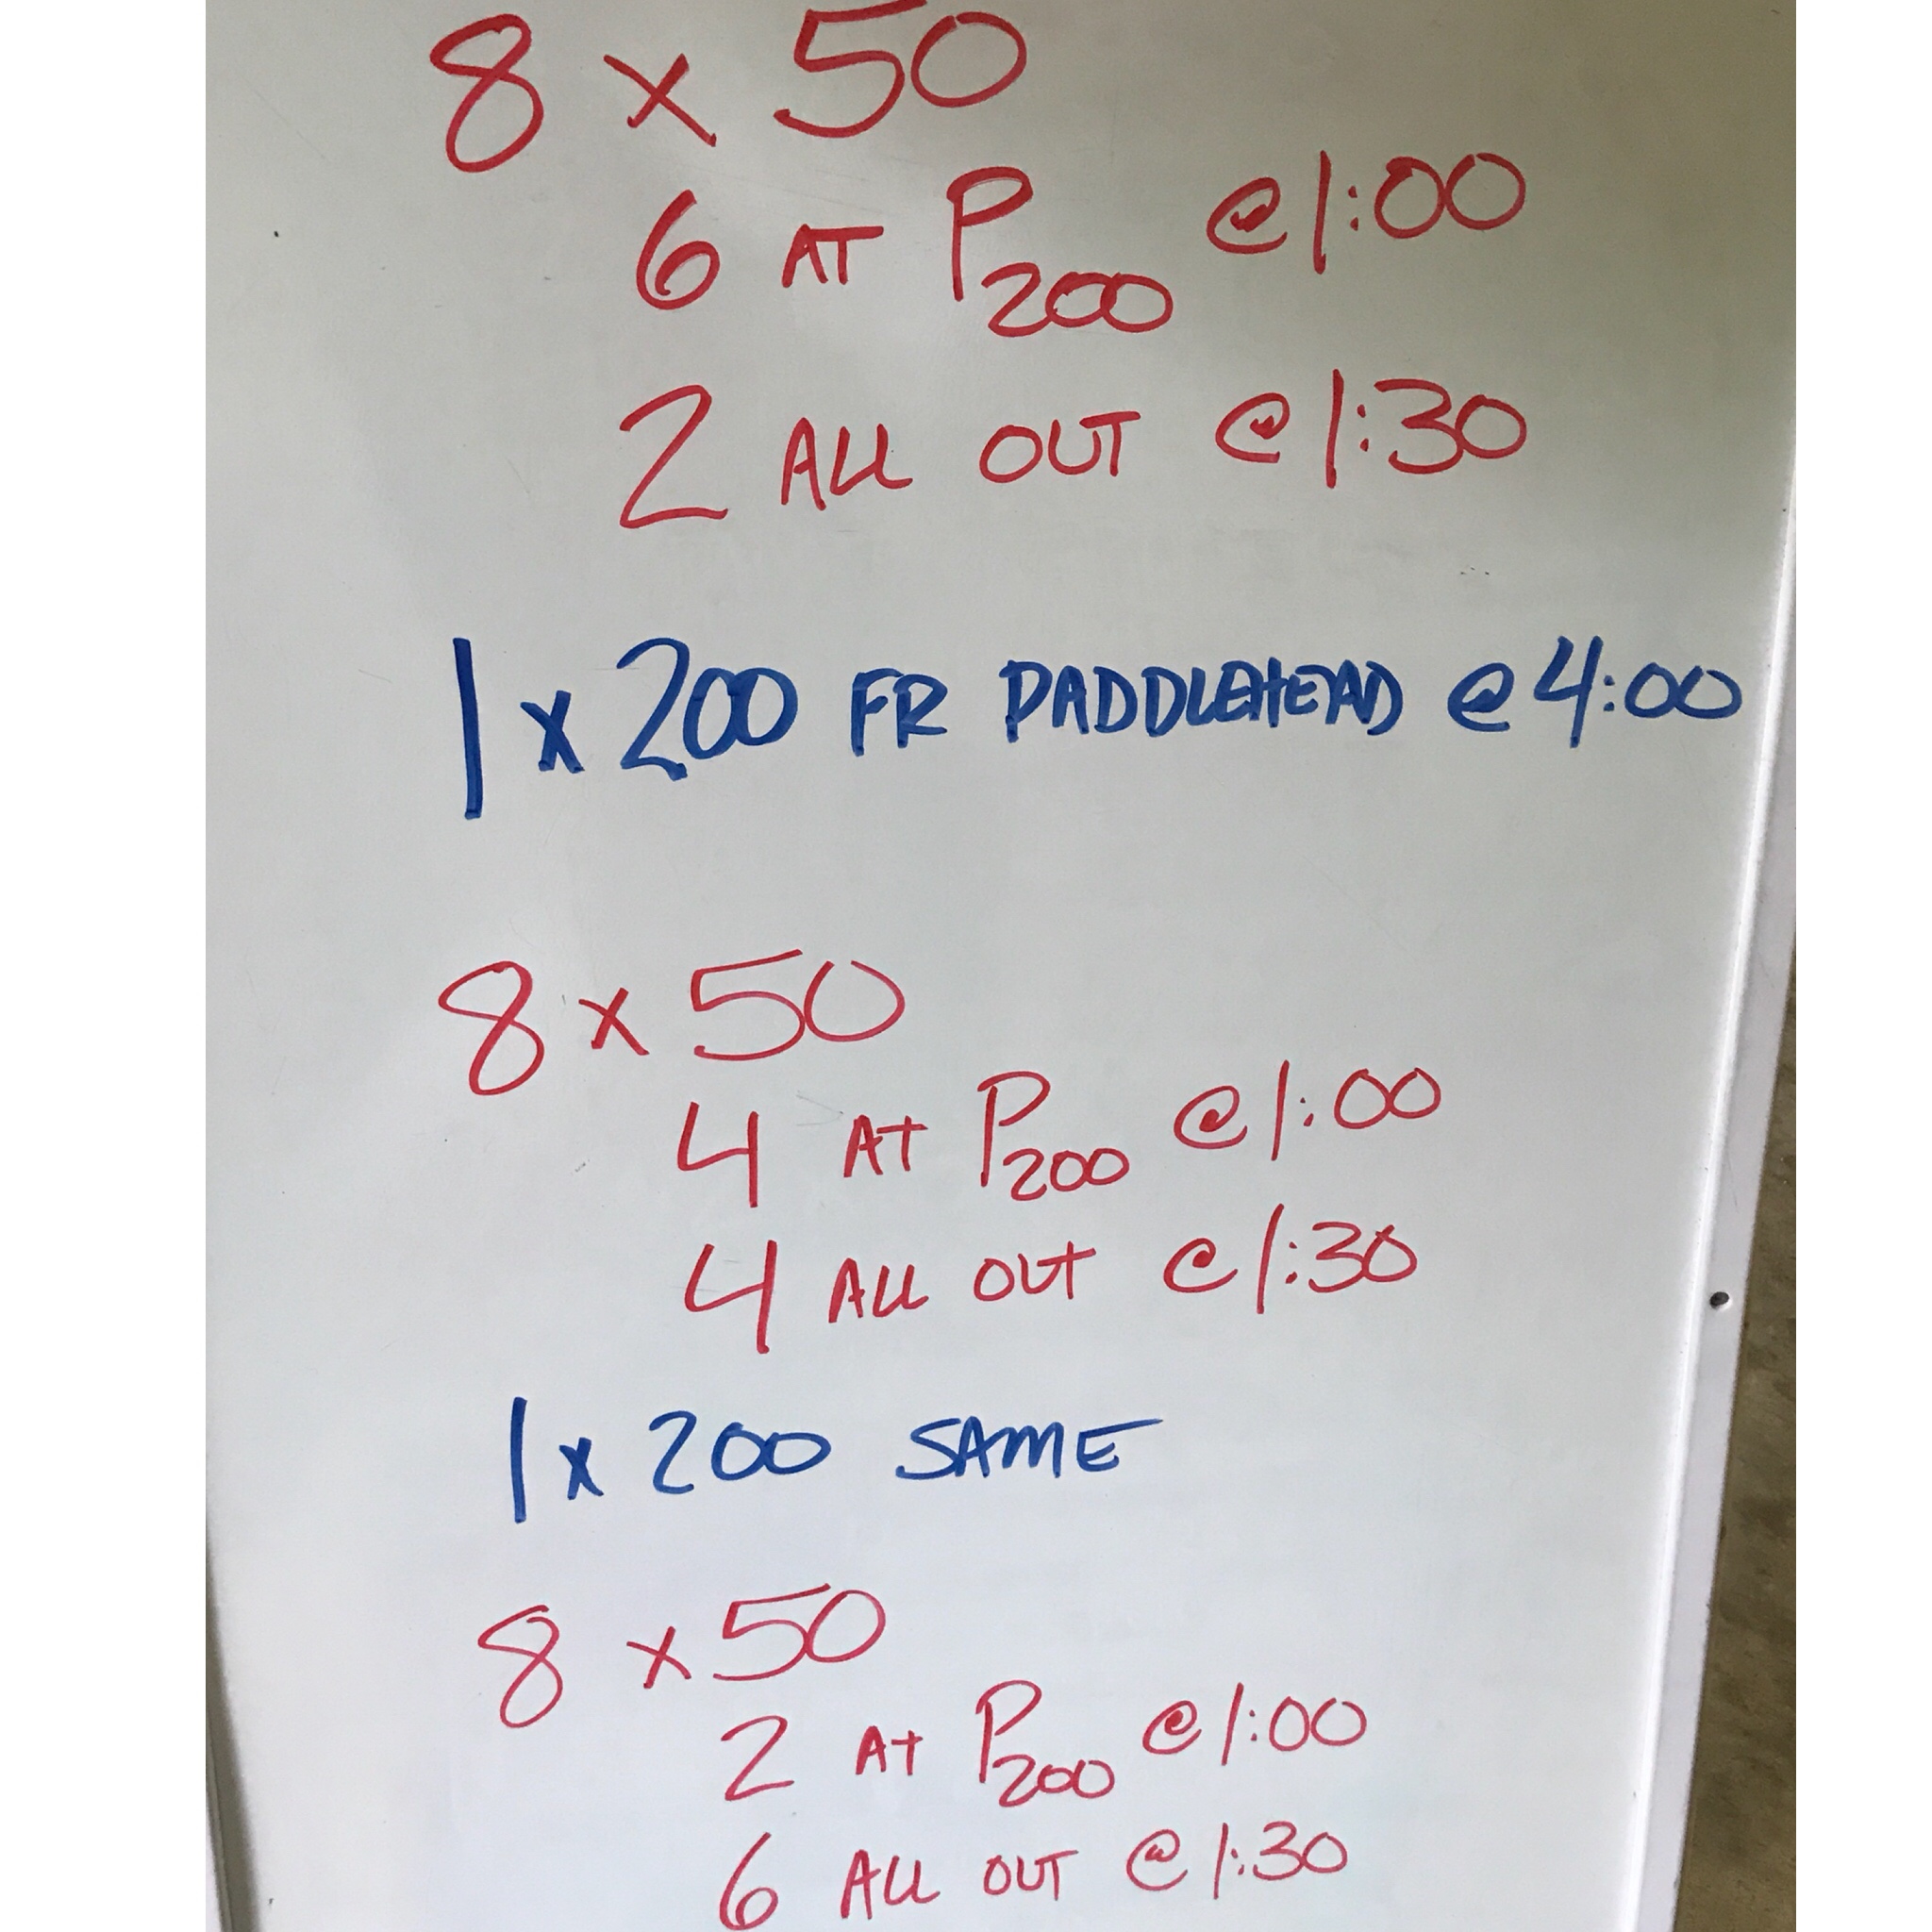 8 x 50
6 AT P200 @1:00
2 ALL OUT @1:30
1 x 200 FR PADDLEHEAD @4:00
8 x 50
4 AT P200 @1:00
4 ALL OUT @1:30
1 x 200 SAME
8 x 50
2 AT P200 @1:00
6 ALL OUT @1:30